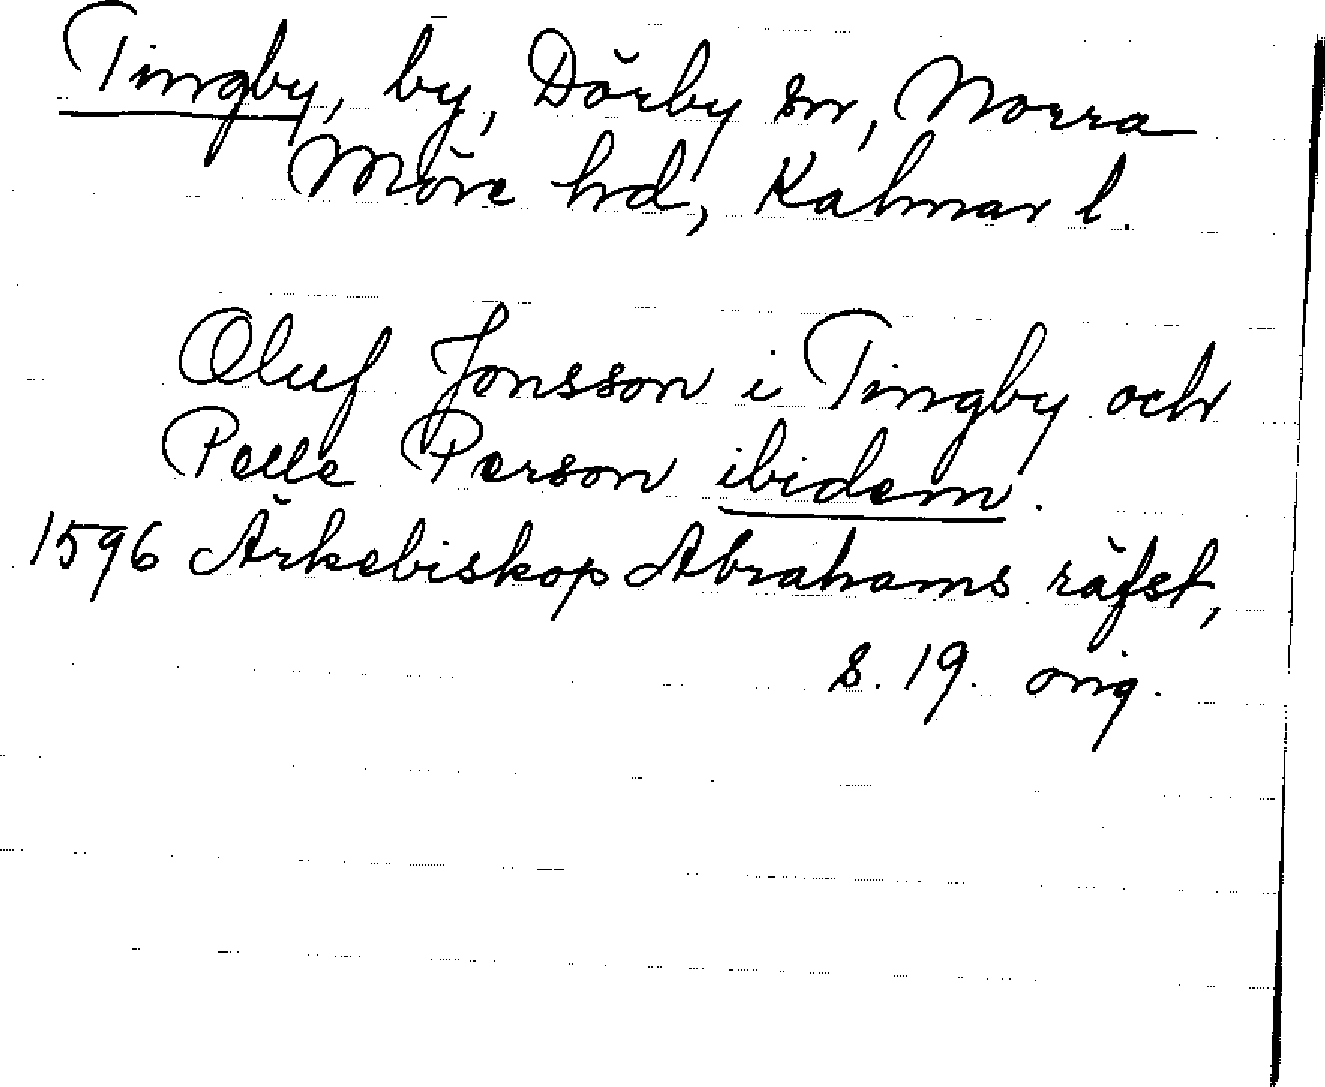 Tingby, by, Dörby sn, Norra
Möre hd, Kalmar l.
Oluf Jonsson i Tingby och
Pelle Person ibidem.
1596 Ärkebiskop Abrahams räfst,
s. 19. orig.